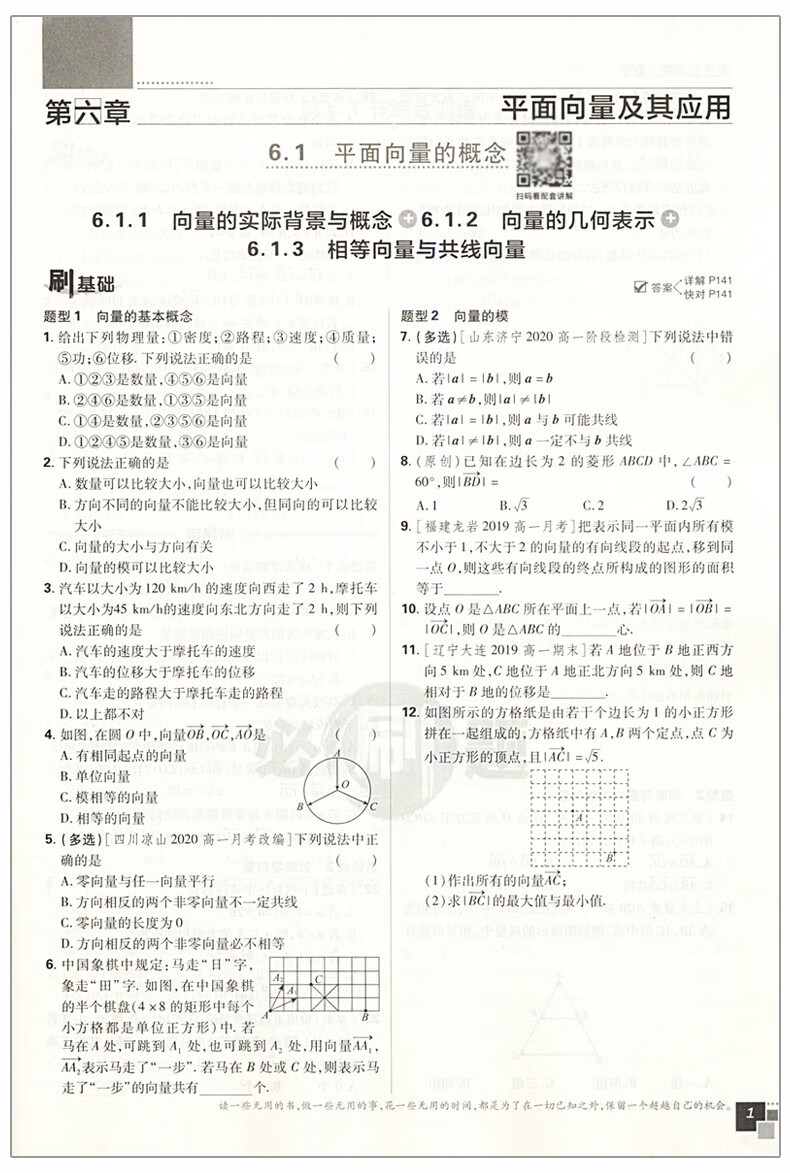 第六章
平面向量及其应用
6.1 平面向量的概念
扫码看配套讲解
6.1.1 向量的实际背景与概念 + 6.1.2 向量的几何表示 +
6.1.3 相等向量与共线向量
刷基础
答案
详解 P141
快对 P141
题型1 向量的基本概念
1. 给出下列物理量:①密度;②路程;③速度;④质量;
⑤功;⑥位移. 下列说法正确的是 ( )
A. ①②③是数量,④⑤⑥是向量
B. ②④⑥是数量,①③⑤是向量
C. ①④是数量,②③⑤⑥是向量
D. ①②④⑤是数量,③⑥是向量
2. 下列说法正确的是 ( )
A. 数量可以比较大小,向量也可以比较大小
B. 方向不同的向量不能比较大小,但同向的可以比较
大小
C. 向量的大小与方向有关
D. 向量的模可以比较大小
3. 汽车以大小为 120 km/h 的速度向西走了 2 h,摩托车
以大小为45 km/h的速度向东北方向走了 2 h,则下列
说法正确的是 ( )
A. 汽车的速度大于摩托车的速度
B. 汽车的位移大于摩托车的位移
C. 汽车走的路程大于摩托车走的路程
D. 以上都不对
4. 如图,在圆 O 中,向量$\overrightarrow{OB}$,$\overrightarrow{OC}$,$\overrightarrow{AO}$是 ( )
A. 有相同起点的向量
B. 单位向量
C. 模相等的向量
D. 相等的向量
A
O
B
C
5. (多选)[四川凉山 2020 高一月考改编]下列说法中正
确的是 ( )
A. 零向量与任一向量平行
B. 方向相反的两个非零向量不一定共线
C. 零向量的长度为 0
D. 方向相反的两个非零向量必不相等
6. 中国象棋中规定:马走“日”字,
象走“田”字. 如图,在中国象棋
的半个棋盘(4×8 的矩形中每个
小方格都是单位正方形)中. 若
马在 A 处,可跳到 A₁ 处,也可跳到 A₂ 处,用向量$\overrightarrow{AA_1}$,
$\overrightarrow{AA_2}$表示马走了“一步”. 若马在 B 处或 C 处,则表示马
走了“一步”的向量共有______个.
A₂
C
A₁
A
B
题型2 向量的模
7. (多选)[山东济宁 2020 高一阶段检测]下列说法中错
误的是 ( )
A. 若|a| = |b|,则 a = b
B. 若 a≠b,则|a|≠|b|
C. 若|a| = |b|,则 a 与 b 可能共线
D. 若|a|≠|b|,则 a 一定不与 b 共线
8. (原创)已知在边长为 2 的菱形 ABCD 中,∠ABC =
60°,则|$\overrightarrow{BD}$| = ( )
A. 1 B. √3 C. 2 D. 2√3
9. [福建龙岩 2019 高一月考]把表示同一平面内所有模
不小于 1,不大于 2 的向量的有向线段的起点,移到同
一点 O,则这些有向线段的终点所构成的图形的面积
等于______.
10. 设点 O 是△ABC 所在平面上一点,若|$\overrightarrow{OA}$| = |$\overrightarrow{OB}$| =
|$\overrightarrow{OC}$|,则 O 是△ABC 的______心.
11. [辽宁大连 2019 高一期末]若 A 地位于 B 地正西方
向 5 km 处,C 地位于 A 地正北方向 5 km 处,则 C 地
相对于 B 地的位移是______.
12. 如图所示的方格纸是由若干个边长为 1 的小正方形
拼在一起组成的,方格纸中有 A,B 两个定点,点 C 为
小正方形的顶点,且|$\overrightarrow{AC}$| = √5.
A
B
(1)作出所有的向量$\overrightarrow{AC}$;
(2)求|$\overrightarrow{BC}$|的最大值与最小值.
必刷题
读一些无用的书,做一些无用的事,花一些无用的时间,都是为了在一切已知之外,保留一个超越自己的机会。
1